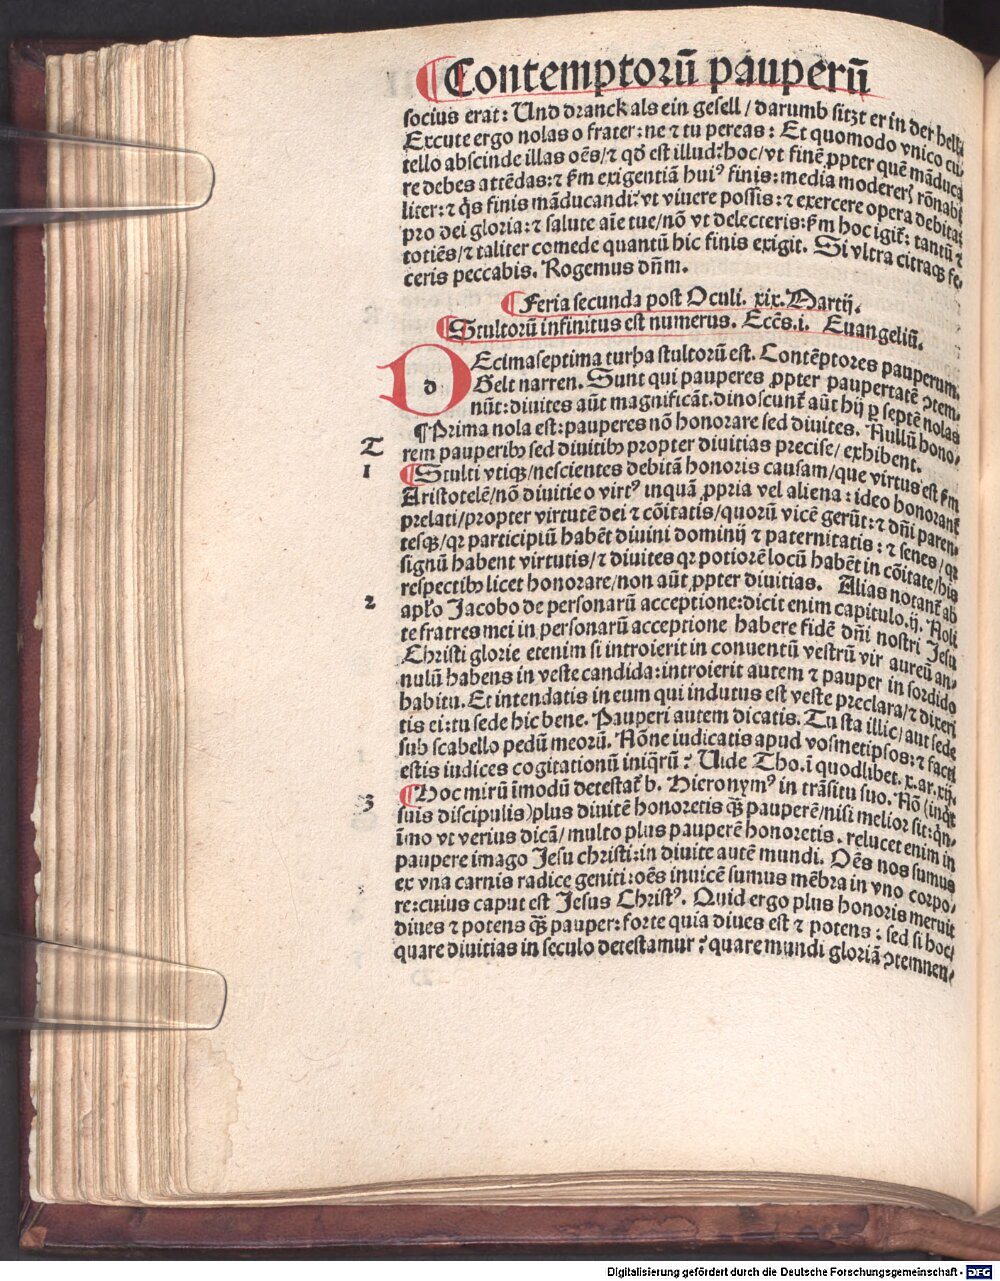 ¶Contemptorū pauperū
socius erat: Und dranck als ein gesell / darumb sitzt er in der hell.
Excute ergo nolas o frater: ne ⁊ tu pereas: Et quomodo vnico cul
tello abscinde illas oēs/⁊ qď est illud: hoc/vt finē ꝓpter quē māduca
re debes attēdas: ⁊ ẜm exigentiā huiꝰ finis: media modereris rōnabi
liter: ⁊ q̇s finis māducandi: vt viuere possis: ⁊ exercere opera debita
pro dei gloria: ⁊ salute aīe tue/nō vt delecteris: ẜm hoc igit̄: tantū ⁊
totiēs/⁊ taliter comede quantū hic finis exigit. Si vltra citraqꝫ fe⸗
ceris peccabis. Rogemus dn̄m.
¶Feria secunda post Oculi. xix. Martij.
¶Stultorū infinitus est numerus. Eccēs.i. Euangeliū.
d
DEcimaseptima turba stultorū est. Contēptores pauperum.
Gelt narren. Sunt qui pauperes ꝓpter paupertatē ꝯtem⸗
nūt: diuites aūt magnificāt. dinoscunt̄ aūt hij ꝑ septē nolas
¶Prima nola est: pauperes nō honorare sed diuites. Nullū hono⸗
T
rem pauperibꝰ sed diuitibꝰ propter diuitias precise/ exhibent.
1
¶Stulti vtiqꝫ/nescientes debitā honoris causam/que virtus est ẜm
Aristotelē/nō diuitie o virtꝰ inquā ꝓpria vel aliena: ideo honorant̄
prelati/propter virtutē dei ⁊ cōitatis/quorū vicē gerūt: ⁊ dn̄i paren⸗
tesqꝫ/qꝛ participiū habēt diuini dominij ⁊ paternitatis: ⁊ senes/qꝛ
signū habent virtutis/⁊ diuites qꝛ potiorē locū habēt in cōitate/his
respectibꝰ licet honorare/non aūt ꝓpter diuitias. Alias notant̄ ab
2
apl̄o Jacobo de personarū acceptione: dicit enim capitulo.ij. Noli
te fratres mei in personarū acceptione habere fidē dn̄i nostri Jesu
Christi glorie etenim si introierit in conuentū vestrū vir aureū an⸗
nulū habens in veste candida: introierit autem ⁊ pauper in sordido
habitu. Et intendatis in eum qui indutus est veste preclara/⁊ dixeri
tis ei: tu sede hic bene. Pauperi autem dicatis. Tu sta illic/aut sede
sub scabello pedū meorū. Nōne iudicatis apud vosmetipsos: ⁊ facti
estis iudices cogitationū iniq̄rū? Uide Tho. ī quodlibet. x. ar. xij.
3
¶Hoc mirū īmodū detestat̄ b. Hieronymꝰ in trāsitu suo. Nō (inq̇t
suis discipulis) plus diuitē honoretis qꝫ̄ pauperē/nisi melior sit: qn̄⸗
īmo vt verius dicā/ multo plus pauperē honoretis. relucet enim in
paupere imago Jesu christi: in diuite autē mundi. Oēs nos sumus
ex vna carnis radice geniti: oēs inuicē sumus mēbra in vno corpo⸗
re: cuius caput est Jesus Christꝰ. Quid ergo plus honoris meruit
diues ⁊ potens qꝫ̄ pauper: forte quia diues est ⁊ potens: sed si hoc/
quare diuitias in seculo detestamur? quare mundi gloriā ꝯtemnen⸗
Digitalisierung gefördert durch die Deutsche Forschungsgemeinschaft - DFG